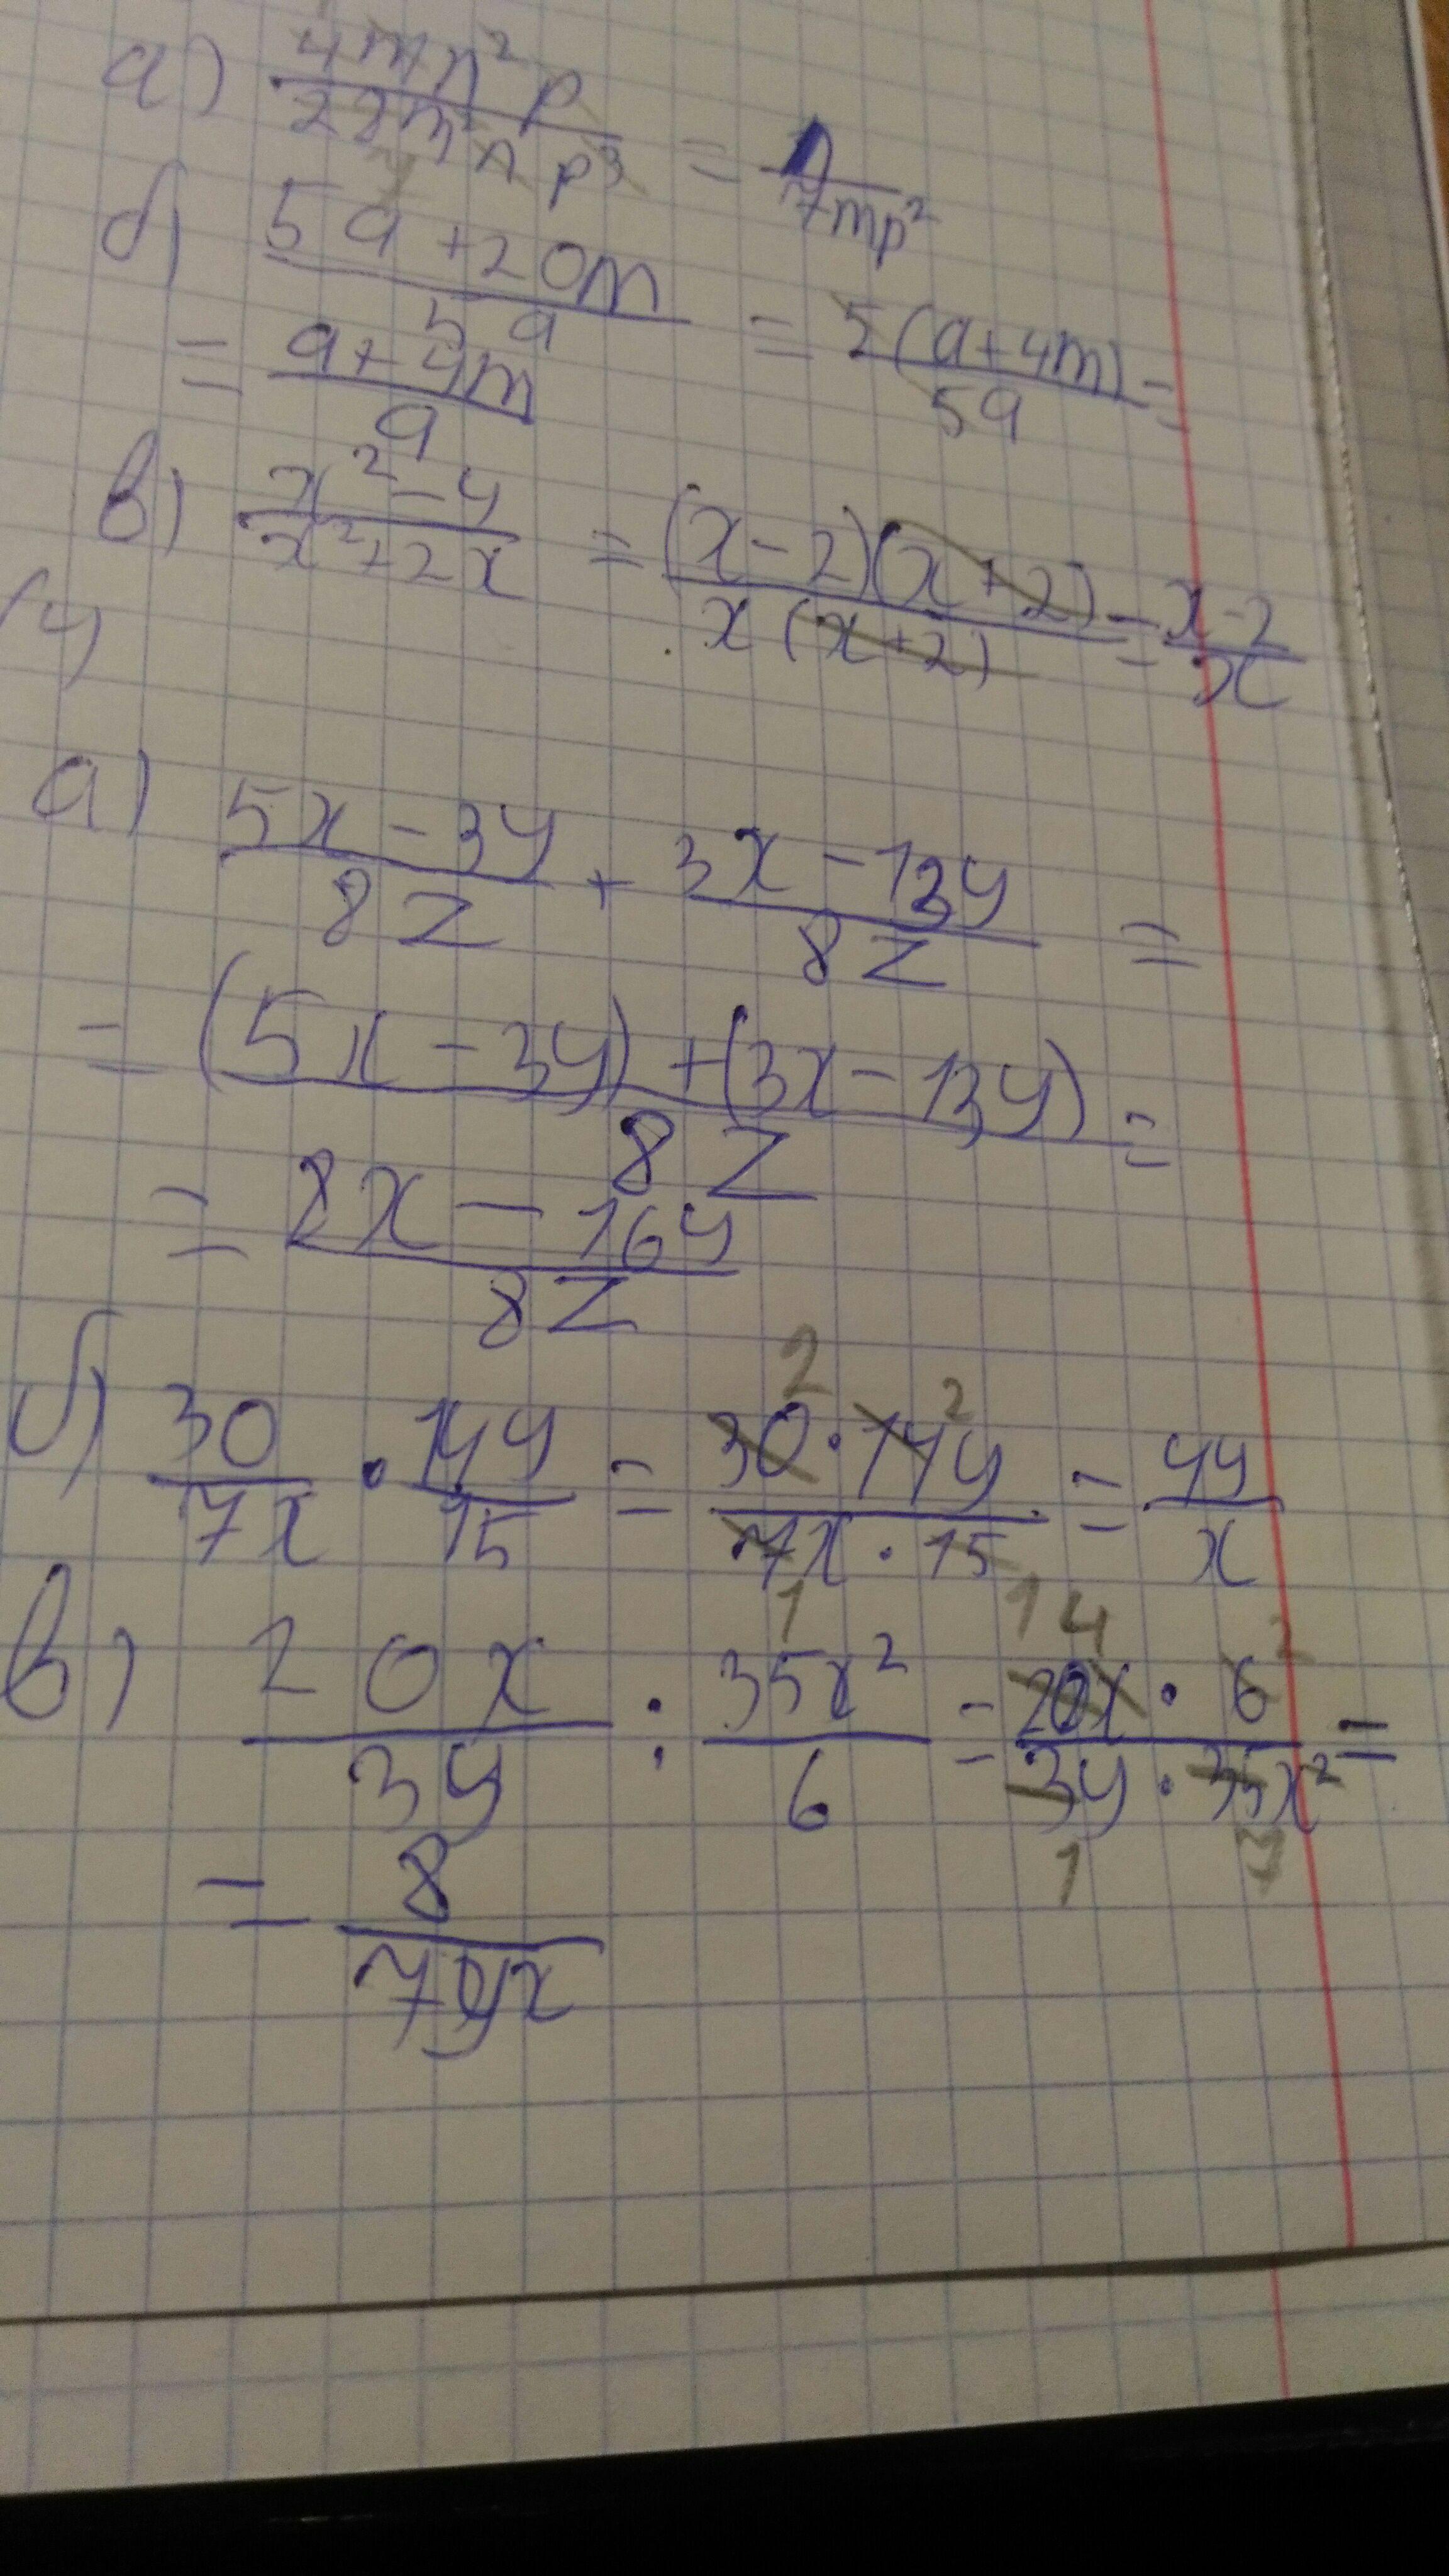 а) 4mn²p / 28m²np³ = n / 7mp²
б) 5a+20m / 5a = 5(a+4m) / 5a =
= a+4m / a
в) x²-4 / x²+2x = (x-2)(x+2) / x(x+2) = x-2 / x
а) 5x-3y / 8z + 3x-13y / 8z =
= (5x-3y)+(3x-13y) / 8z =
= 8x-16y / 8z
2 2
б) 30 / 7x · 14y / 15 = 30·14y / 7x·15 = 4y / x
1 1
4 2
в) 20x / 3y : 35x² / 6 = 20x·6 / 3y·35x² =
1 7
= 8 / 7yx